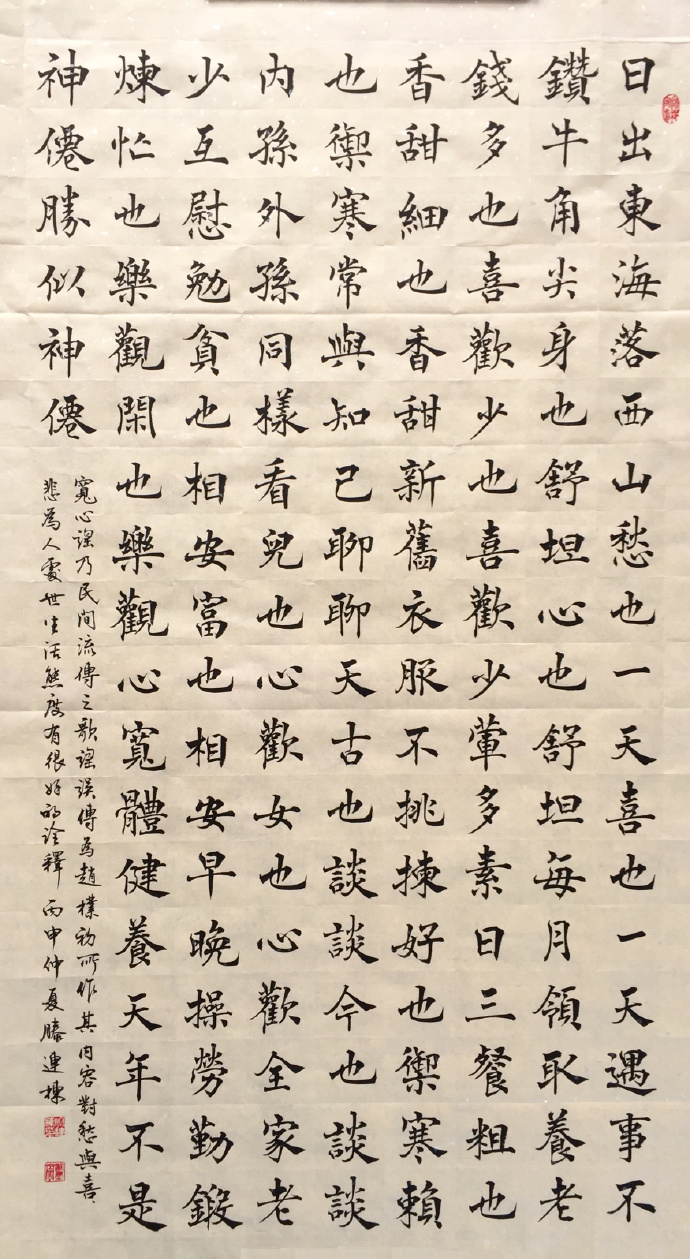 日出東海落西山愁也一天喜也一天遇事不
鑽牛角尖身也舒坦心也舒坦每月領取養老
錢多也喜歡少也喜歡少葷多素日三餐粗也
香甜細也香甜新舊衣服不挑揀好也禦寒賴
也禦寒常與知己聊聊天古也談談今也談談
內孫外孫同樣看兒也心歡女也心歡全家老
少互慰勉貧也相安富也相安早晚操勞勤鍛
煉忙也樂觀閑也樂觀心寬體健養天年不是
神僊勝似神僊
寬心謠乃民間流傳之歌謠誤傳為趙樸初所作其内容對愁與喜
悲為人處世生活態度有很好的詮釋 丙申仲夏滕連棟